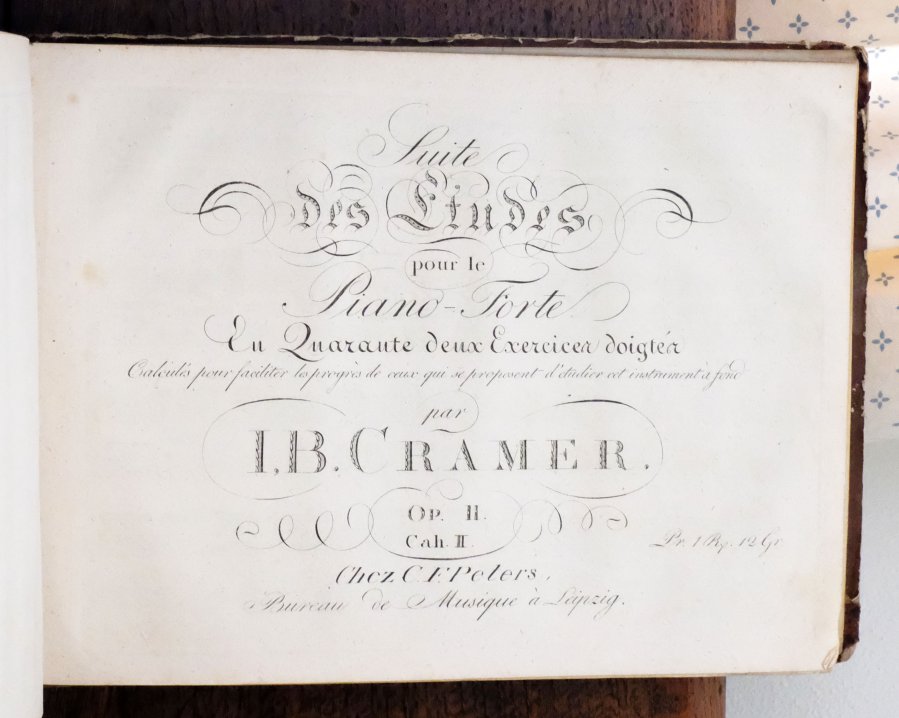 Suite
des Etudes
pour le
Piano-Forte
En Quarante deux Exercices doigtés
Calculés pour faciliter les progrès de ceux qui se proposent d'étudier cet instrument à fond
par
I. B. CRAMER.
Op. II.
Cah. II.
Pr. 1 Rp. 12 Gr.
Chez C. F. Peters,
Bureau de Musique à Leipzig.